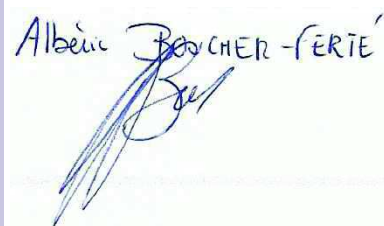 Albéric BOUCHER-FERTÉ